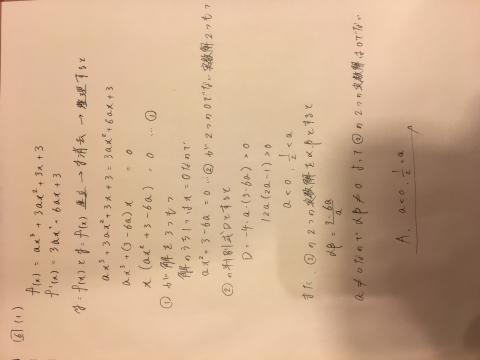 [6] (1)
f(x) = ax³ + 3ax² + 3x + 3
f'(x) = 3ax² + 6ax + 3
y = f(x) と y = f'(x) 連立 → y消去 → 整理すると
ax³ + 3ax² + 3x + 3 = 3ax² + 6ax + 3
ax³ + (3-6a)x = 0
x (ax² + 3 - 6a) = 0 … ①
①が解を3つもつ
解のうち1つは x = 0 なので
ax² + 3 - 6a = 0 … ② が2つの0でない実数解2つもつ
②の判別式Dとすると
D = -4·a·(3-6a) > 0
12a(2a-1) > 0
a < 0, 1/2 < a
また ②の2つの実数解をα βとすると
αβ = (3-6a)/a
a ≠ 0 なので αβ ≠ 0 よって ②の2つの実数解は0でない
A. a < 0, 1/2 < a